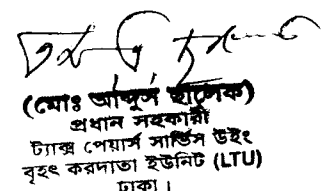 (মোঃ আব্দুস ছালেক)
প্রধান সহকারী
ট্যাক্স পেয়ার্স সার্ভিস উইং
বৃহৎ করদাতা ইউনিট (LTU)
ঢাকা।